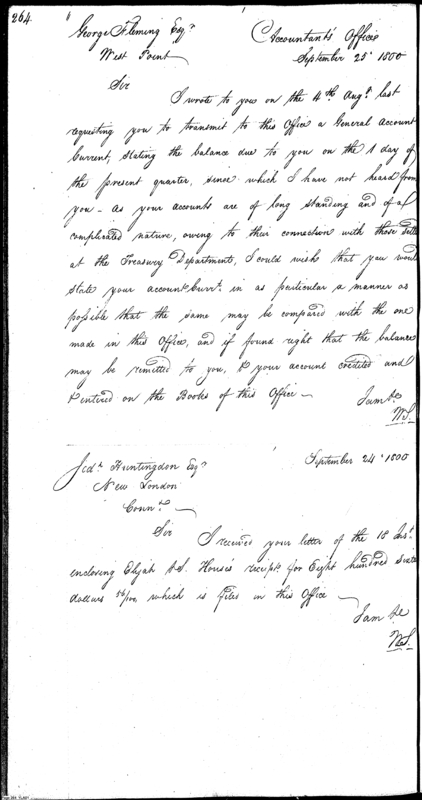 264.
George Fleming Esqr Accountants Office
West Point September 25th 1800
Sir
I wrote to you on the 4th Augt. last
requesting you to transmit to this Office a General Account
Current, stating the balance due to you on the 1 day of
the present quarter, since which I have not heard from
you - as your accounts are of long standing and of a
complicated nature, owing to their connection with those
at the Treasury Department, I could wish that you would
state your account Currt. in as particular a manner as
possible that the same may be compared with the one
made in this Office, and if found right that the balance
may be remitted to you, & your account credited and
entered on the Books of this Office
I am &c
W.S.
Jedh. Huntingdon Esqr September 24th 1800
New London
Connt.
Sir
I received your letter of the 18 Inst.
enclosing Elijah House's receipt for Eight hundred
dollars 56/100 which is filed in this Office
I am &c
W.S.